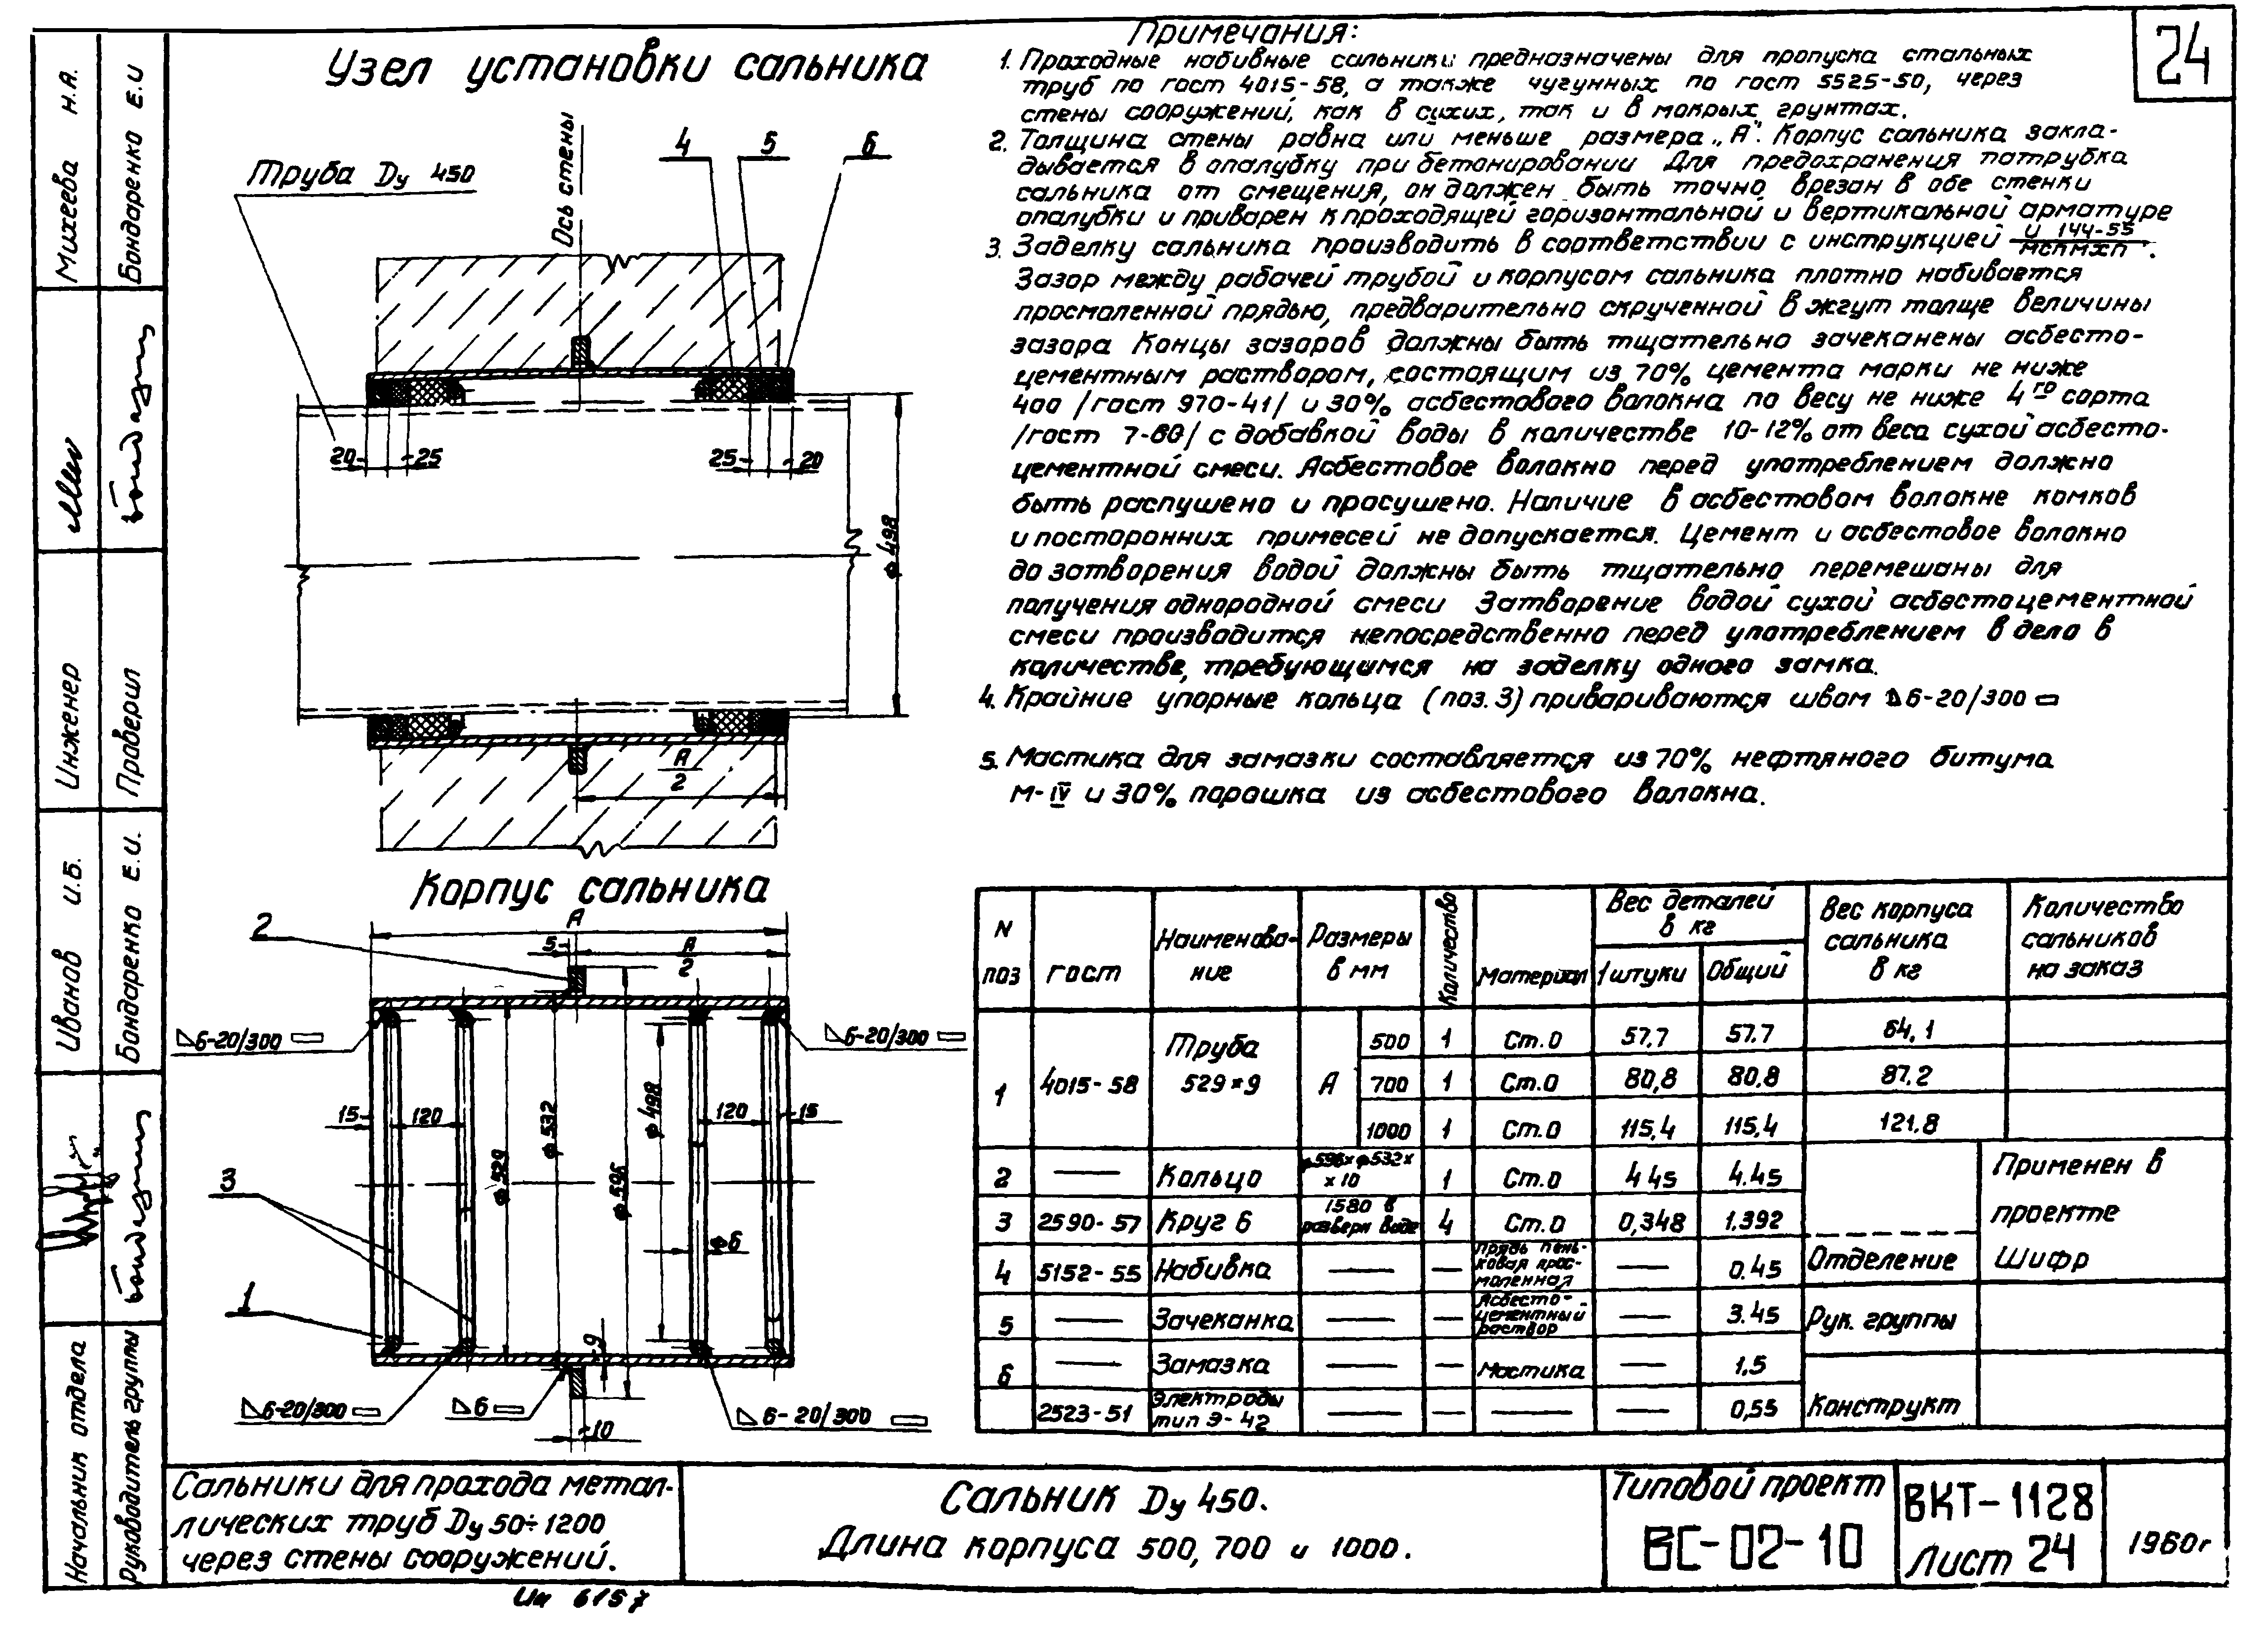 24
Узел установки сальника
Труба Dу 450
Ось стены
4
5
6
20
25
25
20
ф 498
А
2
Корпус сальника
2
А
5
А
2
6-20/300
6-20/300
15
120
120
15
ф 529
ф 532
ф 596
ф 498
ф6
3
1
9
6-20/300
6
6-20/300
10
Примечания:
1. Проходные набивные сальники предназначены для пропуска стальных
труб по гост 4015-58, а также чугунных по гост 5525-50, через
стены сооружений, как в сухих, так и в мокрых грунтах.
2. Толщина стены равна или меньше размера „А". Корпус сальника закла-
дывается в опалубку при бетонировании Для предохранения патрубка
сальника от смещения, он должен быть точно врезан в обе стенки
опалубки и приварен к проходящей горизонтальной и вертикальной арматуре
3. Заделку сальника производить в соответствии с инструкцией И 144-55
МСПМХП.
Зазор между рабочей трубой и корпусом сальника плотно набивается
просмоленной прядью, предварительно скрученной в жгут толще величины
зазора Концы зазоров должны быть тщательно зачеканены асбесто-
цементным раствором, состоящим из 70% цемента марки не ниже
400 /гост 970-41/ и 30% асбестового волокна по весу не ниже 4го сорта
/гост 7-60/ с добавкой воды в количестве 10-12% от веса сухой асбесто-
цементной смеси. Асбестовое волокно перед употреблением должно
быть распушено и просушено. Наличие в асбестовом волокне комков
и посторонних примесей не допускается. Цемент и асбестовое волокно
до затворения водой должны быть тщательно перемешаны для
получения однородной смеси Затворение водой сухой асбестоцементной
смеси производится непосредственно перед употреблением в дело в
количестве, требующимся на заделку одного замка.
4. Крайние упорные кольца (поз. 3) привариваются швом 6-20/300
5. Мастика для замазки составляется из 70% нефтяного битума
М-IV и 30% порошка из асбестового волокна.
N поз | гост | Наименова-ние | Размеры в мм | Количество | Материал | Вес деталей в кг | 1 штуки | Общий | Вес корпуса сальника в кг | Количество сальников на заказ
1 | 4015-58 | Труба 529×9 | А | 500 | 1 | Ст.0 | 57,7 | 57.7 | 64,1
700 | 1 | Ст.0 | 80,8 | 80.8 | 87.2
1000 | 1 | Ст.0 | 115,4 | 115,4 | 121.8
2 | — | Кольцо | ф596×ф532××10 | 1 | Ст.0 | 4 45 | 4.45
3 | 2590-57 | Круг 6 | 1580 в разверн виде | 4 | Ст.0 | 0,348 | 1.392
4 | 5152-55 | Набивка | — | — | Прядь пень-ковая прос-моленная | — | 0.45
5 | — | Зачеканка | — | — | Асбесто-цементный раствор | — | 3.45
6 | — | Замазка | — | — | Мастика | — | 1,5
2523-51 | Электроды тип Э-42 | — | — | — | — | 0,55
Применен в
проекте
Шифр
Отделение
Рук. группы
Конструкт
Михеева Н.А.
Бондаренко Е.И
Инженер
Проверил
Иванов И.Б.
Бондаренко Е.И.
Начальник отдела
Руководитель группы
Сальники для прохода метал-
лических труб Dу 50÷1200
через стены сооружений.
Сальник Dу 450.
Длина корпуса 500, 700 и 1000.
Типовой проект
ВС-02-10
ВКТ-1128
Лист 24
1960г
6157